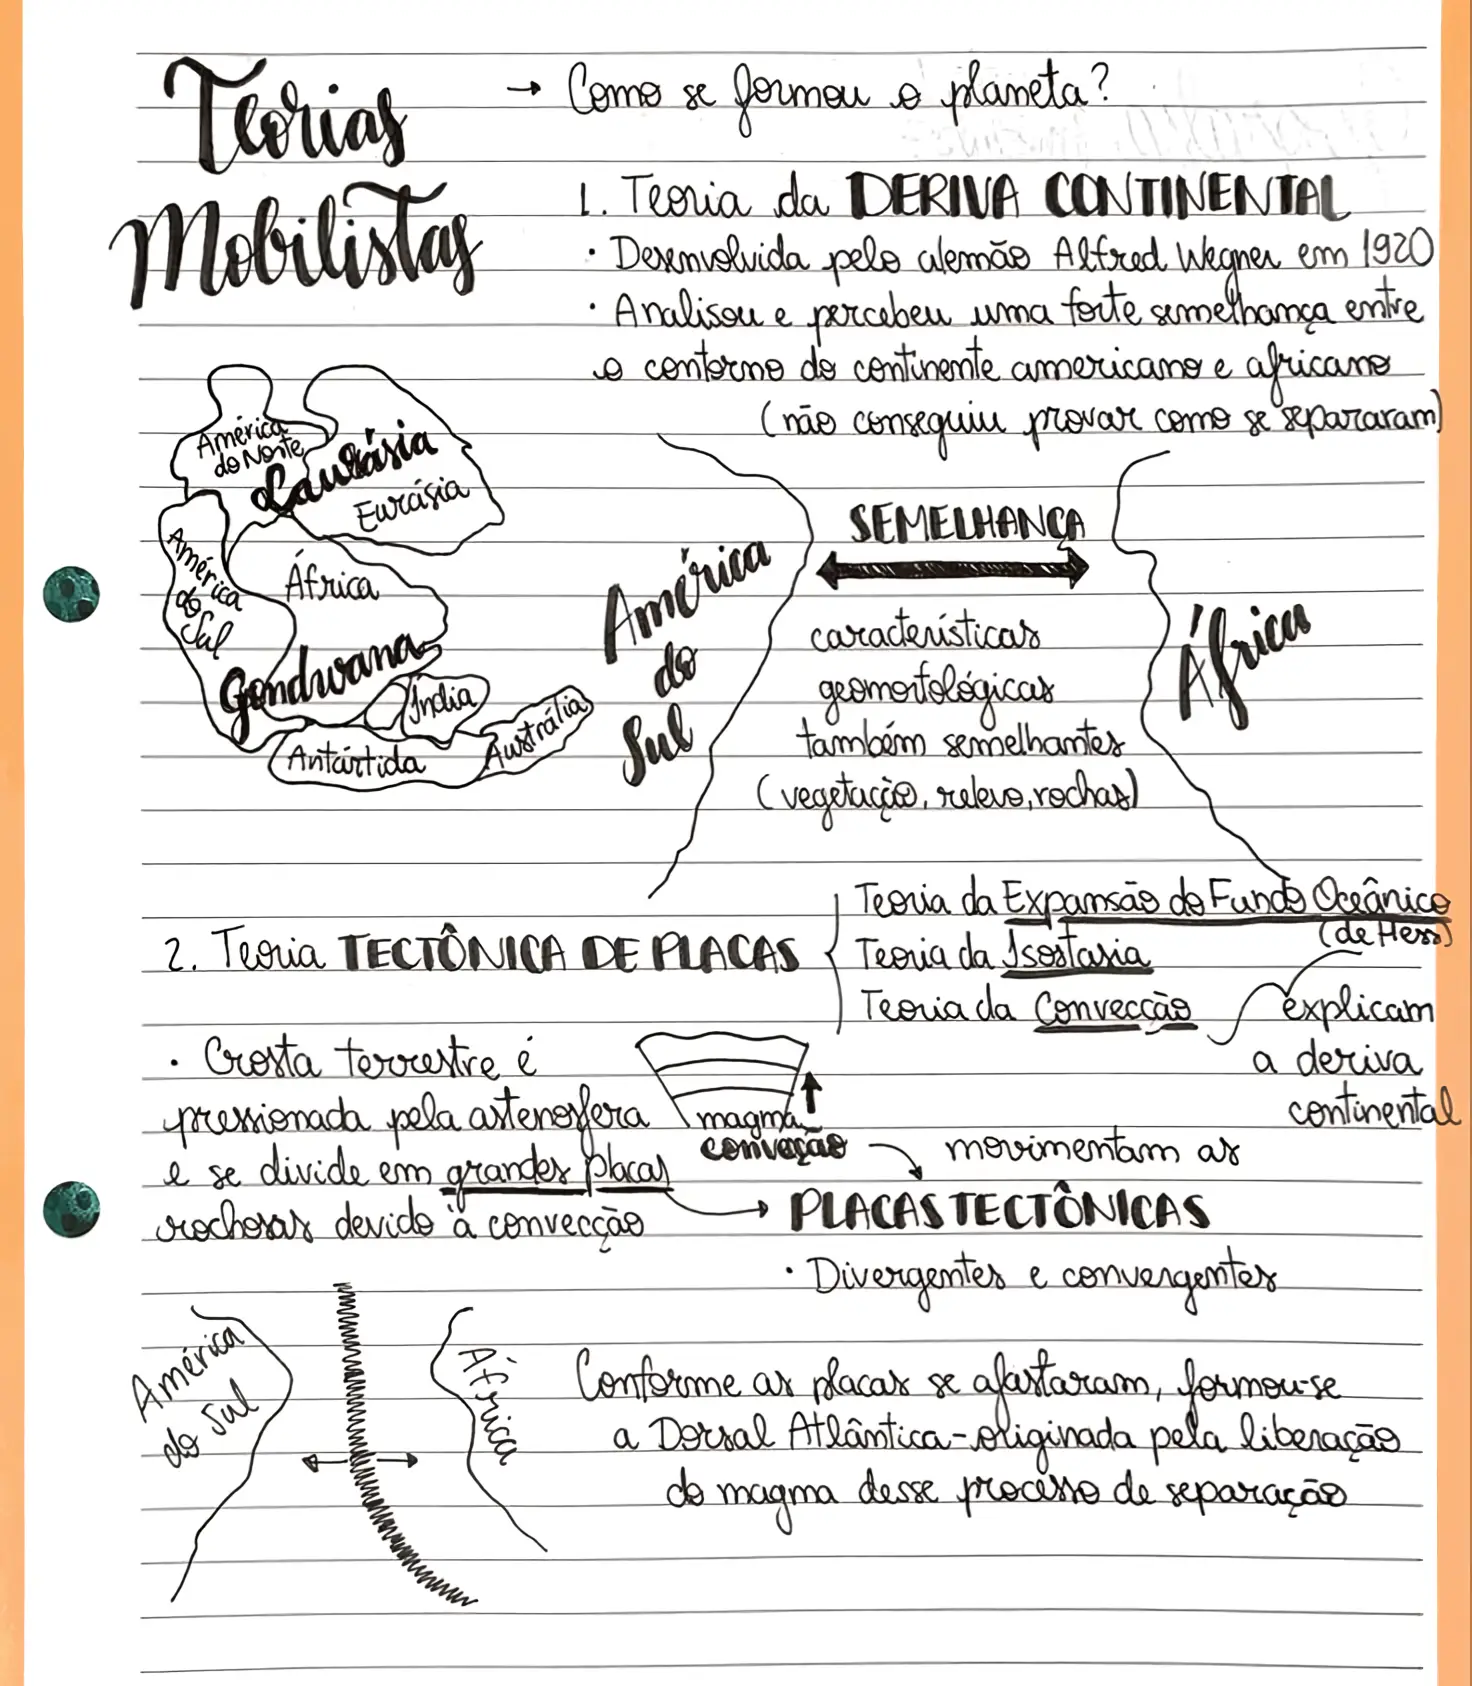 Teorias
Mobilistas
→ Como se formou o planeta?
1. Teoria da DERIVA CONTINENTAL
· Desenvolvida pelo alemão Alfred Wegner em 1920
· Analisou e percebeu uma forte semelhança entre
o contorno do continente americano e africano
(não conseguiu provar como se separaram)
América
do Norte
Laurásia
Eurásia
América
do
Sul
África
Gondwana
Índia
Austrália
Antártida
América
do
Sul
SEMELHANÇA
características
geomorfológicas
também semelhantes
(vegetação, relevo, rochas)
África
2. Teoria TECTÔNICA DE PLACAS
Teoria da Expansão do Fundo Oceânico
(de Hess)
Teoria da Isostasia
Teoria da Convecção
explicam
a deriva
continental
· Crosta terrestre é
pressionada pela astenosfera
e se divide em grandes placas
rochosas devido à convecção
magma
conveção
movimentam as
→ PLACAS TECTÔNICAS
· Divergentes e convergentes
América
do Sul
África
Conforme as placas se afastaram, formou-se
a Dorsal Atlântica - originada pela liberação
do magma desse processo de separação